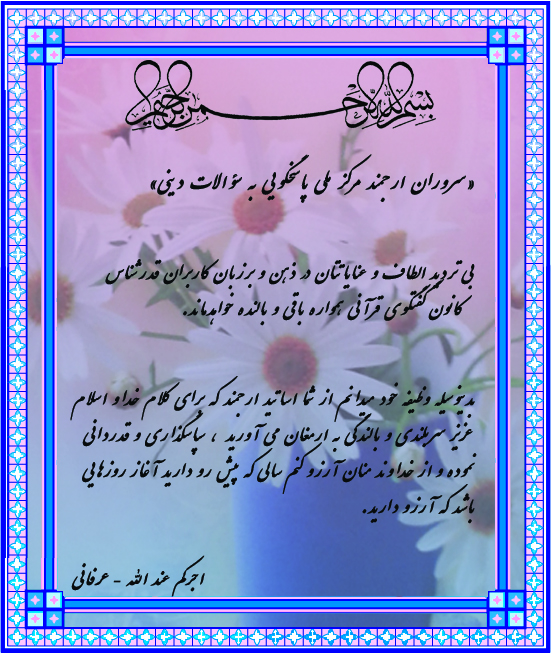 بسم الله الرحمن الرحیم
«سروران ارجمند مرکز ملی پاسخگویی به سؤالات دینی»
بی تردید الطاف و عنایاتتان در ذهن و برزبان کاربران قدرشناس
کانون گفتگوی قرآنی همواره باقی و بالنده خواهدماند.
بدینوسیله وظیفه خود میدانم از شما اساتید ارجمند که برای کلام خدا و اسلام
عزیز سربلندی و بالندگی به ارمغان می آورید ، سپاسگذاری و قدردانی
نموده و از خداوند منان آرزو کنم سالی که پیش رو دارید آغاز روزهایی
باشد که آرزو دارید.
اجرکم عند الله - عرفانی